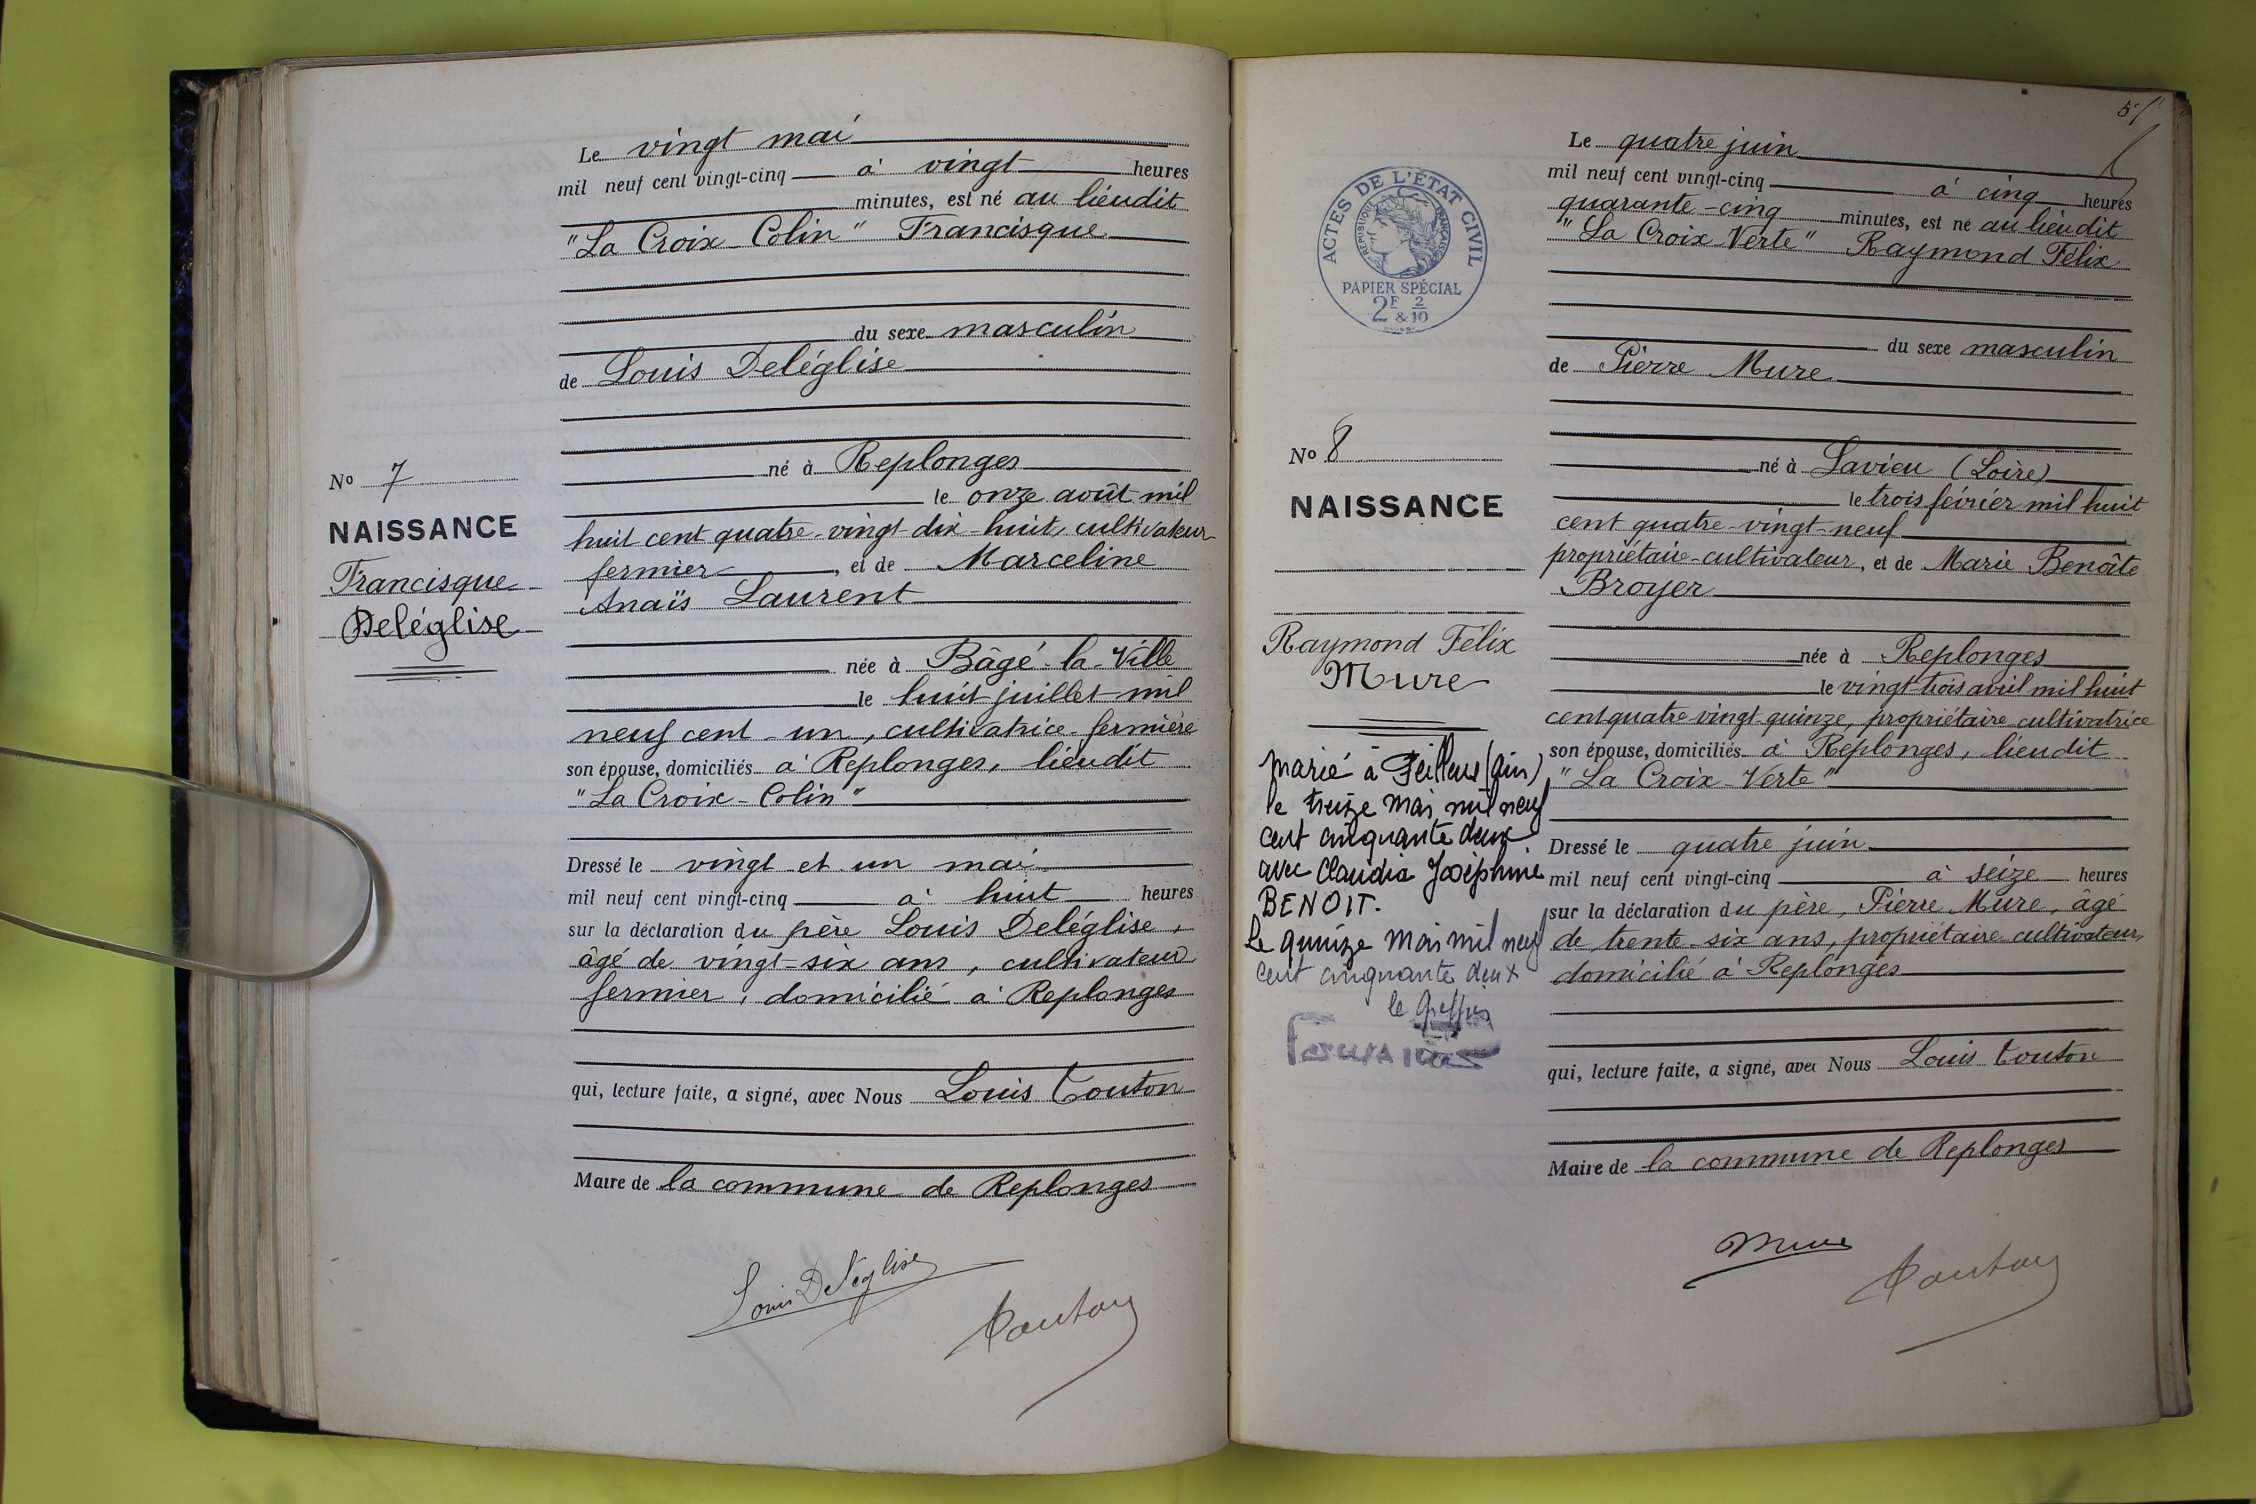 Le vingt mai
mil neuf cent vingt-cinq à vingt heures
minutes, est né au lieudit
"La Croix-Colin" Francisque
du sexe masculin
de Louis Deléglise
né à Replonges
le onze août mil
huit cent quatre-vingt-dix-huit, cultivateur
fermier, et de Marceline
Anaïs Laurent
née à Bâgé-la-Ville
le huit juillet mil
neuf cent-un, cultivatrice-fermière
son épouse, domiciliés à Replonges, lieudit
"La Croix-Colin"
Dressé le vingt et un mai
mil neuf cent vingt-cinq à huit heures
sur la déclaration du père Louis Deléglise,
âgé de vingt-six ans, cultivateur
fermier, domicilié à Replonges
qui, lecture faite, a signé, avec Nous Louis Touton
Maire de la commune de Replonges
Louis Deléglise
Touton
No 7
NAISSANCE
Francisque
Deléglise
51
Le quatre juin
mil neuf cent vingt-cinq à cinq heures
quarante-cinq minutes, est né au lieudit
"La Croix-Verte" Raymond Félix
du sexe masculin
de Pierre Mure
né à Lavieu (Loire)
le trois février mil huit
cent quatre-vingt-neuf
propriétaire-cultivateur, et de Marie Benoîte
Broyer
née à Replonges
le vingt-trois avril mil huit
cent quatre-vingt-quinze, propriétaire-cultivatrice
son épouse, domiciliés à Replonges, lieudit
"La Croix-Verte"
Dressé le quatre juin
mil neuf cent vingt-cinq à seize heures
sur la déclaration du père, Pierre Mure, âgé
de trente-six ans, propriétaire cultivateur,
domicilié à Replonges
qui, lecture faite, a signé, avec Nous Louis Touton
Maire de la commune de Replonges
Mure
Touton
ACTES DE L'ÉTAT CIVIL
RÉPUBLIQUE FRANÇAISE
PAPIER SPÉCIAL
2F & 2/10
No 8
NAISSANCE
Raymond Félix
Mure
Marié à Feillens (Ain)
le treize mai mil neuf
cent cinquante deux
avec Claudia Joséphine
BENOIT.
Le quinze mai mil neuf
cent cinquante deux
le Greffier